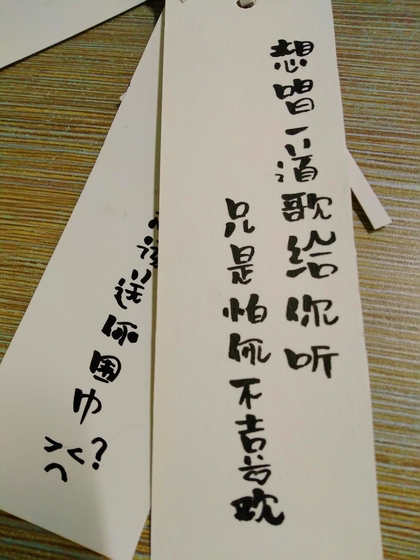 想唱一首歌给你听
只是怕你不喜欢
该送你围巾
><?